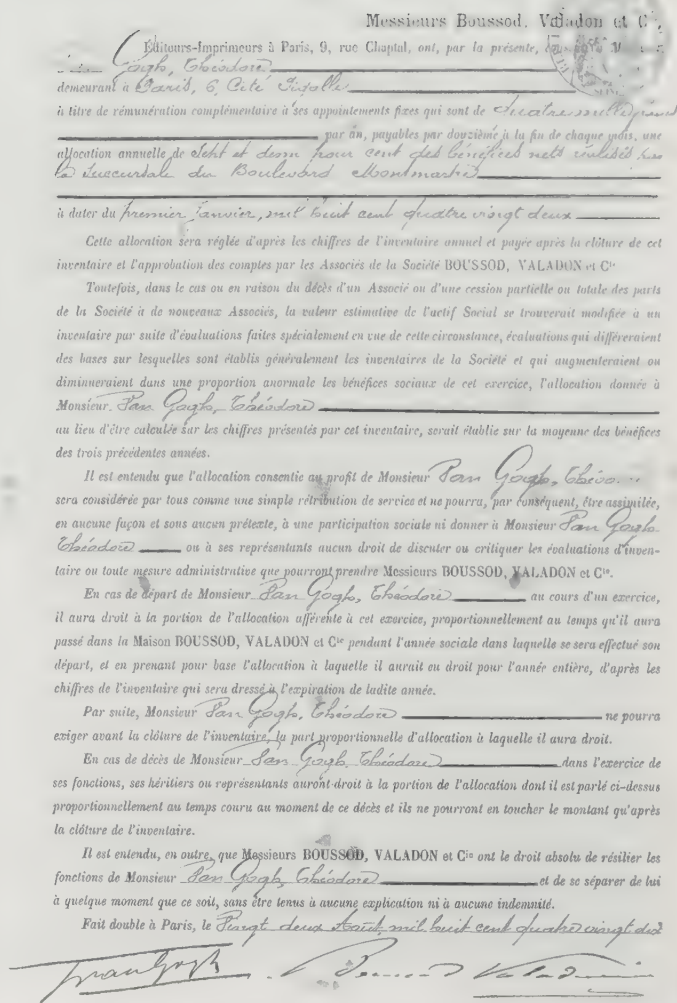 Messieurs Boussod, Valadon et Cie,
Éditeurs-Imprimeurs à Paris, 9, rue Chaptal, ont, par la présente,
Gogh, Théodore
demeurant à Paris, 6, Cité Pigalle
à titre de rémunération complémentaire à ses appointements fixes qui sont de Quatre mille francs
par an, payables par douzième à la fin de chaque mois, une
allocation annuelle de Sept et demi pour cent des bénéfices nets réalisés par
la Succursale du Boulevard Montmartre
à dater du premier Janvier, mil huit cent quatre vingt deux
Cette allocation sera réglée d'après les chiffres de l'inventaire annuel et payée après la clôture de cet
inventaire et l'approbation des comptes par les Associés de la Société BOUSSOD, VALADON et Cie
Toutefois, dans le cas ou en raison du décès d'un Associé ou d'une cession partielle ou totale des parts
de la Société à de nouveaux Associés, la valeur estimative de l'actif Social se trouverait modifiée à un
inventaire par suite d'évaluations faites spécialement en vue de cette circonstance, évaluations qui différeraient
des bases sur lesquelles sont établis généralement les inventaires de la Société et qui augmenteraient ou
diminueraient dans une proportion anormale les bénéfices sociaux de cet exercice, l'allocation donnée à
Monsieur Van Gogh, Théodore
au lieu d'être calculée sur les chiffres présentés par cet inventaire, serait établie sur la moyenne des bénéfices
des trois précédentes années.
Il est entendu que l'allocation consentie au profit de Monsieur Van Gogh, Théo
sera considérée par tous comme une simple rétribution de service et ne pourra, par conséquent, être assimilée,
en aucune façon et sous aucun prétexte, à une participation sociale ni donner à Monsieur Van Gogh
Théodore ou à ses représentants aucun droit de discuter ou critiquer les évaluations d'inven-
taire ou toute mesure administrative que pourront prendre Messieurs BOUSSOD, VALADON et Cie.
En cas de départ de Monsieur Van Gogh, Théodore au cours d'un exercice,
il aura droit à la portion de l'allocation afférente à cet exercice, proportionnellement au temps qu'il aura
passé dans la Maison BOUSSOD, VALADON et Cie pendant l'année sociale dans laquelle se sera effectué son
départ, et en prenant pour base l'allocation à laquelle il aurait eu droit pour l'année entière, d'après les
chiffres de l'inventaire qui sera dressé à l'expiration de ladite année.
Par suite, Monsieur Van Gogh, Théodore ne pourra
exiger avant la clôture de l'inventaire, la part proportionnelle d'allocation à laquelle il aura droit.
En cas de décès de Monsieur Van Gogh, Théodore dans l'exercice de
ses fonctions, ses héritiers ou représentants auront droit à la portion de l'allocation dont il est parlé ci-dessus
proportionnellement au temps couru au moment de ce décès et ils ne pourront en toucher le montant qu'après
la clôture de l'inventaire.
Il est entendu, en outre, que Messieurs BOUSSOD, VALADON et Cie ont le droit absolu de résilier les
fonctions de Monsieur Van Gogh, Théodore et de se séparer de lui
à quelque moment que ce soit, sans être tenus à aucune explication ni à aucune indemnité.
Fait double à Paris, le Vingt deux Août, mil huit cent quatre vingt
T van Gogh Boussod Valadon